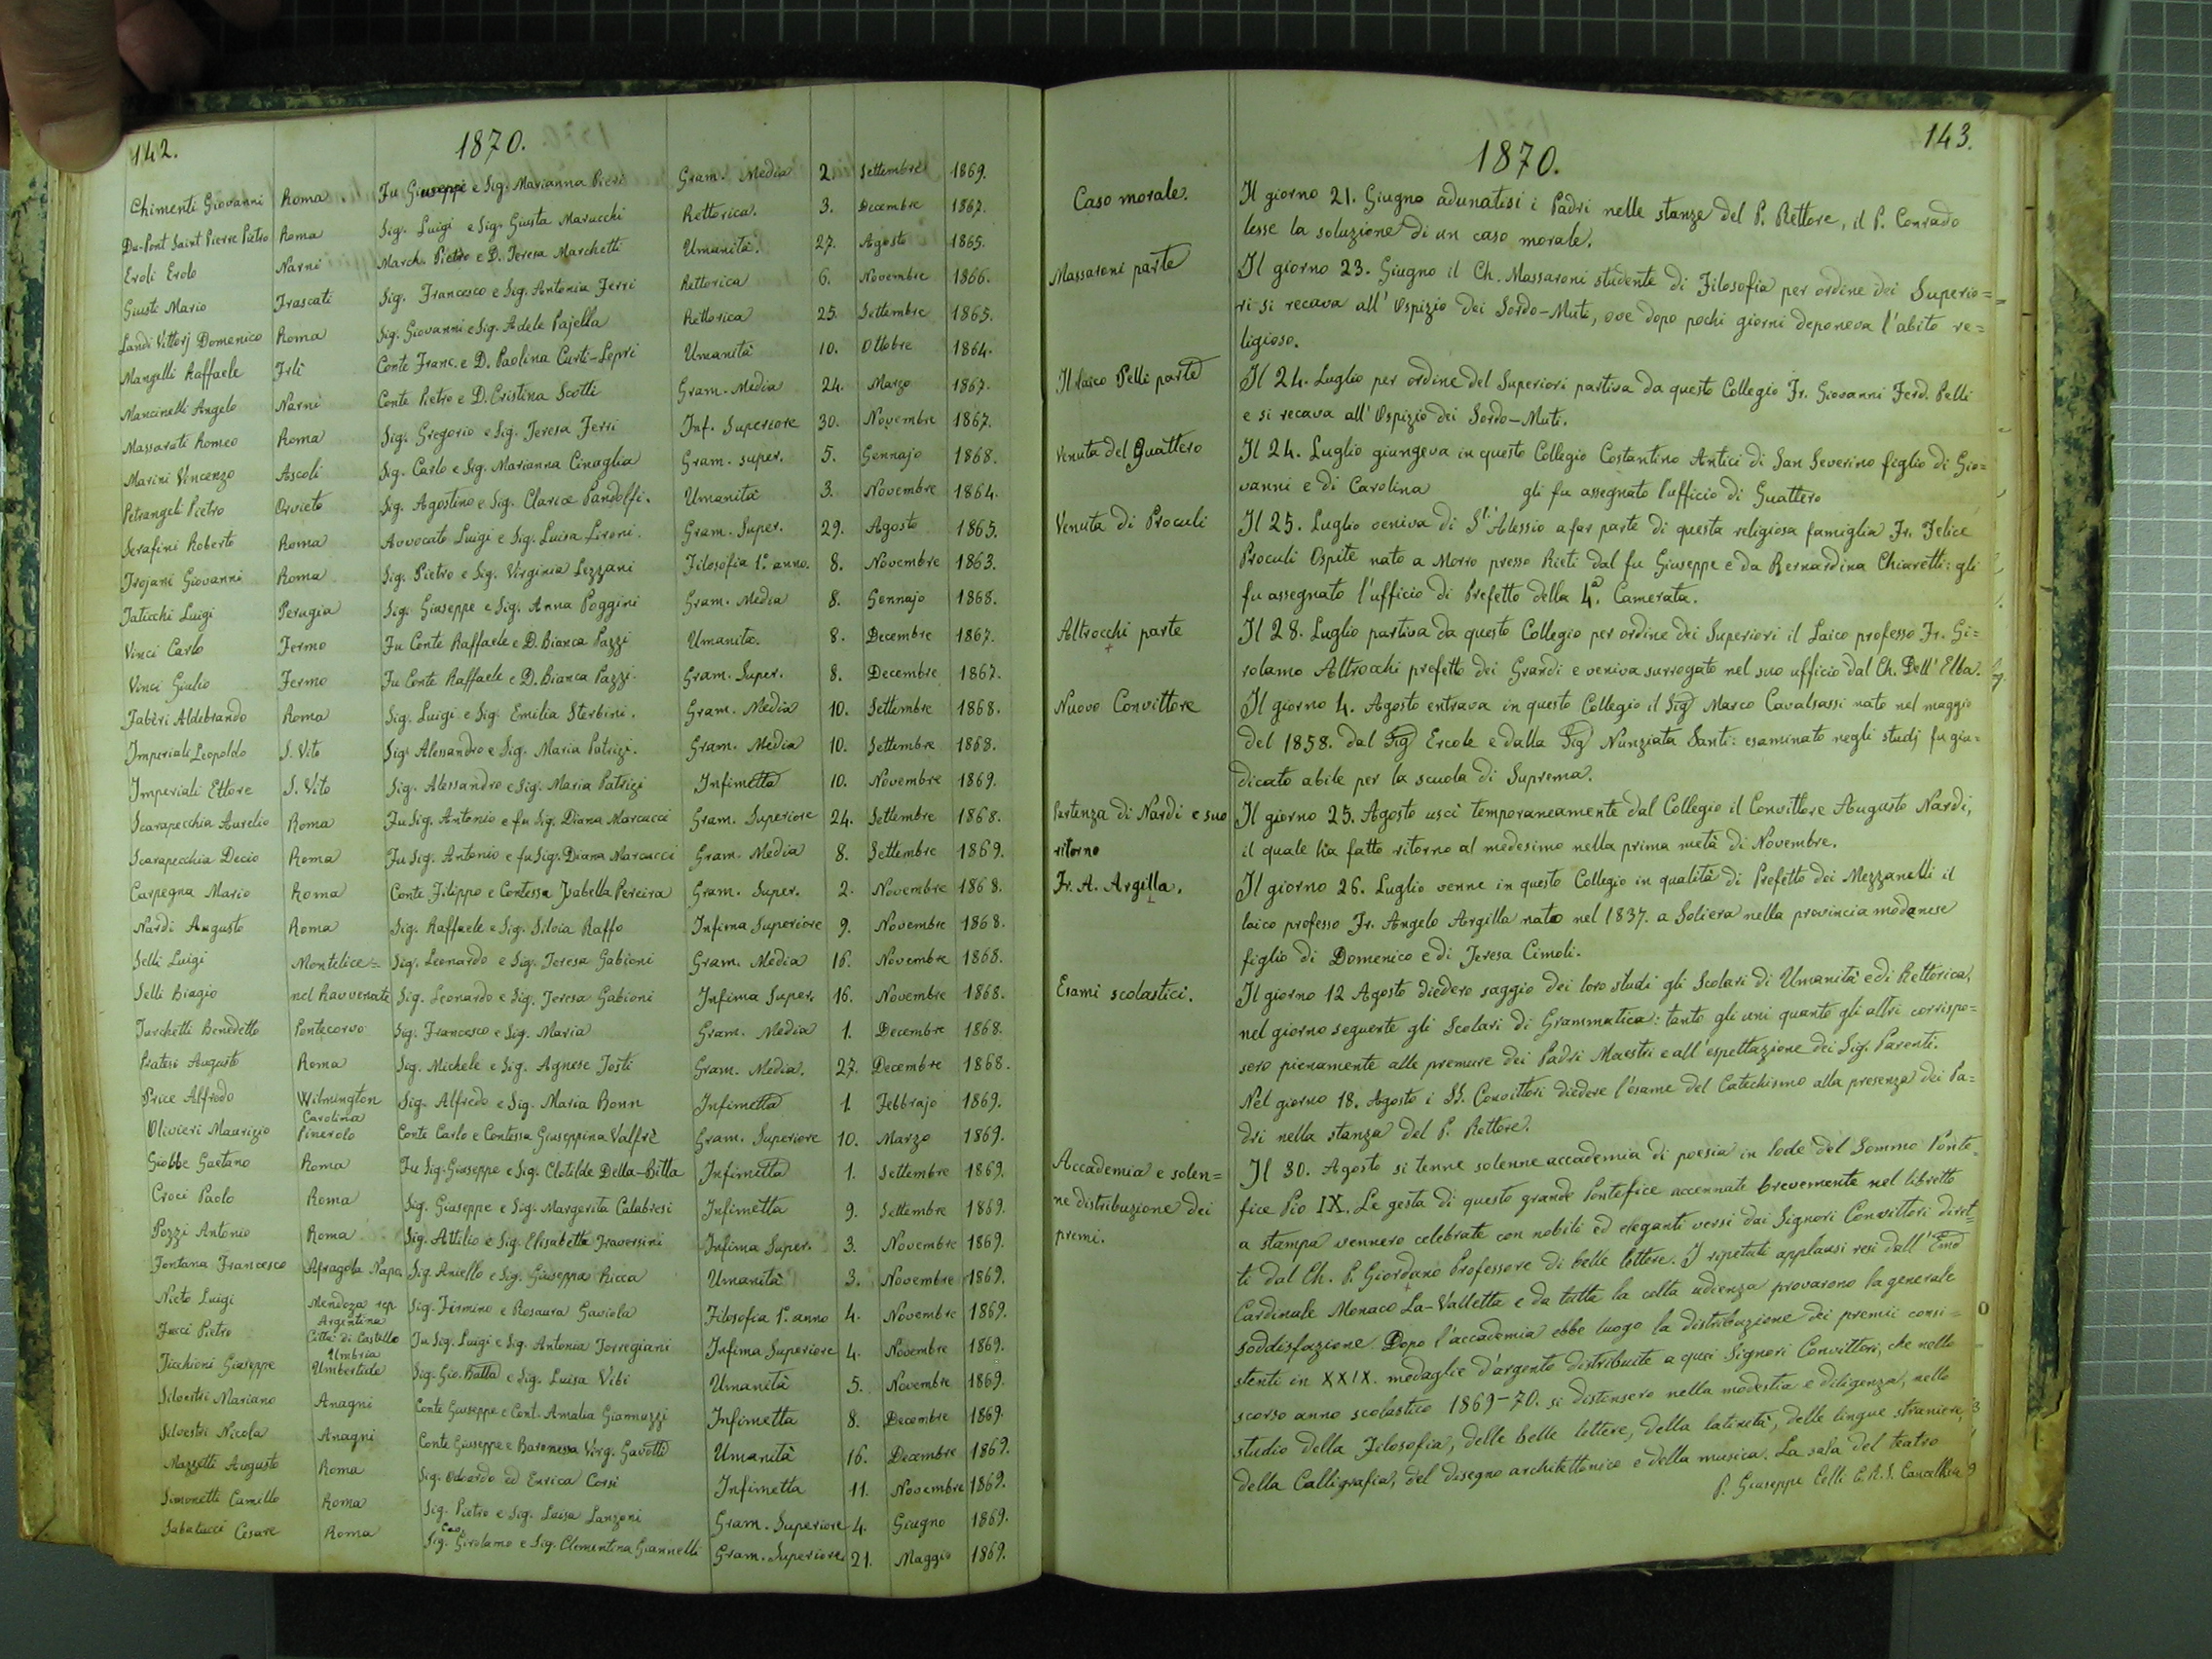 142.
1870.
Chimenti Giovanni Roma Fu Giuseppe e Sig. Marianna Pieri Gram. Media 2. Settembre 1869.
Du-Pont Saint Pierre Pietro Roma Sig. Luigi e Sig. Giusta Marucchi Rettorica. 3. Decembre 1867.
Eroli Erolo Narni March. Pietro e D. Teresa Marchetti Umanità. 27. Agosto 1865.
Giusti Mario Frascati Sig. Francesco e Sig. Antonia Ferri Rettorica 6. Novembre 1866.
Landi Vittorj Domenico Roma Sig. Giovanni e Sig. Adele Pajella Rettorica 25. Settembre 1865.
Mangelli Raffaele Frlì Conte Franc. e D. Paolina Curti-Lepri Umanità 10. Ottobre 1864.
Mancinelli Angelo Narni Conte Pietro e D. Cristina Scotti Gram. Media 24. Marzo 1867.
Massarati Romeo Roma Sig. Gregorio e Sig. Teresa Ferri Inf. Superiore 30. Novembre 1867.
Marini Vincenzo Ascoli Sig. Carlo e Sig. Marianna Cinaglia Gram. super. 5. Gennajo 1868.
Petrangeli Pietro Orvieto Sig. Agostino e Sig. Clarice Pandolfi. Umanità 3. Novembre 1864.
Serafini Roberto Roma Avvocato Luigi e Sig. Luisa Lironi. Gram. Super. 29. Agosto 1865.
Trojani Giovanni Roma Sig. Pietro e Sig. Virginia Lezzani Filosofia 1.° anno. 8. Novembre 1863.
Taticchi Luigi Perugia Sig. Giuseppe e Sig. Anna Poggini Gram. Media 8. Gennajo 1868.
Vinci Carlo Fermo Fu Conte Raffaele e D. Bianca Pazzi Umanità. 8. Decembre 1867.
Vinci Giulio Fermo Fu Conte Raffaele e D. Bianca Pazzi. Gram. Super. 8. Decembre 1867.
Fabèri Aldebrando Roma Sig. Luigi e Sig. Emilia Sterbini. Gram. Media 10. Settembre 1868.
Imperiali Leopoldo S. Vito Sig. Alessandro e Sig. Maria Patrizi. Gram. Media 10. Settembre 1868.
Imperiali Ettore S. Vito Sig. Alessandro e Sig. Maria Patrizi Infimetta 10. Novembre 1869.
Scarapecchia Aurelio Roma Fu Sig. Antonio e fu Sig. Diana Marcucci Gram. Superiore 24. Settembre 1868.
Scarapecchia Decio Roma Fu Sig. Antonio e fu Sig. Diana Marcucci Gram. Media 8. Settembre 1869.
Carpegna Mario Roma Conte Filippo e Contessa Isabella Pereira Gram. Super. 2. Novembre 1868.
Nardi Augusto Roma Sig. Raffaele e Sig. Silvia Raffo Infima Superiore 9. Novembre 1868.
Selli Luigi Montelice= Sig. Leonardo e Sig. Teresa Gabioni Gram. Media 16. Novembre 1868.
Selli Biagio nel Ravvenate Sig. Leonardo e Sig. Teresa Gabioni Infima Super. 16. Novembre 1868.
Turchetti Benedetto Pontecorvo Sig. Francesco e Sig. Maria Gram. Media 1. Decembre 1868.
Pratesi Augusto Roma Sig. Michele e Sig. Agnese Tosti Gram. Media. 27. Decembre 1868.
Price Alfredo Wilmington Carolina Sig. Alfredo e Sig. Maria Bonn Infimetta 1. Febbrajo 1869.
Olivieri Maurizio Pinerolo Conte Carlo e Contessa Giuseppina Valfrè Gram. Superiore 10. Marzo 1869.
Giobbe Gaetano Roma Fu Sig. Giuseppe e Sig. Clotilde Della-Bitta Infimetta 1. Settembre 1869.
Croci Paolo Roma Sig. Giuseppe e Sig. Margerita Calabresi Infimetta 9. Settembre 1869.
Pozzi Antonio Roma Sig. Attilio e Sig. Elisabetta Traversini Infima Super. 3. Novembre 1869.
Fontana Francesco Afragola Napo. Sig. Aniello e Sig. Giuseppa Ricca Umanità 3. Novembre 1869.
Nieto Luigi Mendoza rep Argentina Sig. Firmino e Rosaura Gaviola Filosofia 1.° anno 4. Novembre 1869.
Fucci Pietro Città di Castello Umbria Fu Sig. Luigi e Sig. Antonia Torregiani Infima Superiore 4. Novembre 1869.
Ticchioni Giuseppe Umbertide Sig. Gio. Batta e Sig. Luisa Vibi Umanità 5. Novembre 1869.
Silvestri Mariano Anagni Conte Giuseppe e Cont. Amalia Giannuzzi Infimetta 8. Decembre 1869.
Silvestri Nicola Anagni Conte Giuseppe e Baronessa Virg. Gavotti Umanità 16. Decembre 1869.
Mazzetti Augusto Roma Sig. Odoardo ed Enrica Corsi Infimetta 11. Novembre 1869.
Simonetti Camillo Roma Sig. Pietro e Sig. Luisa Lanzoni Gram. Superiore 4. Giugno 1869.
Sabatucci Cesare Roma Sig. Cav. Girolamo e Sig. Clementina Giannelli Gram. Superiore 21. Maggio 1869.
143.
1870.
Caso morale. Il giorno 21. Giugno adunatisi i Padri nelle stanze del P. Rettore, il P. Conrado
lesse la soluzione di un caso morale.
Massaroni parte Il giorno 23. Giugno il Ch. Massaroni studente di Filosofia per ordine dei Superio=
ri si recava all' Ospizio dei Sordo-Muti, ove dopo pochi giorni deponeva l'abito re=
ligioso.
Il laico Pelli parte Il 24. Luglio per ordine del Superiori partiva da questo Collegio Fr. Giovanni Ferd. Pelli
e si recava all' Ospizio dei Sordo-Muti.
Venuta del Guattero Il 24. Luglio giungeva in questo Collegio Costantino Antici di San Severino figlio di Gio=
vanni e di Carolina gli fu assegnato l'ufficio di Guattero
Venuta di Proculi Il 25. Luglio veniva di St. Alessio a far parte di questa religiosa famiglia Fr. Felice
Proculi Ospite nato a Morro presso Rieti dal fu Giuseppe e da Bernardina Chiaretti: gli
fu assegnato l'ufficio di Prefetto della 4.a Camerata.
Altrocchi parte Il 28. Luglio partiva da questo Collegio per ordine dei Superiori il Laico professo Fr. Gi=
rolamo Altrocchi prefetto dei Grandi e veniva surrogato nel suo ufficio dal Ch. Dell' Elba.
Nuovo Convittore Il giorno 4. Agosto entrava in questo Collegio il Sig Marco Cavalsassi nato nel maggio
del 1858. dal Sig Ercole e dalla Sig Nunziata Santi: esaminato negli studj fu giu=
dicato abile per la scuola di Suprema.
Partenza di Nardi e suo Il giorno 25. Agosto uscì temporaneamente dal Collegio il Convittore Augusto Nardi,
ritorno il quale ha fatto ritorno al medesimo nella prima metà di Novembre.
Fr. A. Argilla. Il giorno 26. Luglio venne in questo Collegio in qualità di Prefetto dei Mezzanelli il
laico professo Fr. Angelo Argilla nato nel 1837. a Soliera nella provincia modanese
figlio di Domenico e di Teresa Cimoli.
Esami scolastici. Il giorno 12 Agosto diedero saggio dei loro studi gli Scolari di Umanità e di Rettorica,
nel giorno seguente gli Scolari di Grammatica: tanto gli uni quanto gli altri corrispo=
sero pienamente alle premure dei Padri Maestri e all'espettazione dei Sig. Parenti.
Nel giorno 18. Agosto i SS. Convittori diedere l'esame del Catechismo alla presenza dei Pa=
dri nella stanza del P. Rettore.
Accademia e solen= Il 30. Agosto si tenne solenne accademia di poesia in lode del Sommo Ponte.
ne distribuzione dei fice Pio IX. Le gesta di questo grande Pontefice accennate brevemente nel libretto
premi. a stampa vennero celebrate con nobili ed eleganti versi dai Signori Convittori diret=
ti dal Ch. P. Giordano Professore di belle lettere. I ripetuti applausi resi dall' Emo
Cardinale Monaco La-Valletta e da tutta la colta udienza provarono la generale
soddisfazione. Dopo l'accademia ebbe luogo la distribuzione dei premii consi=
stenti in XXIX. medaglie d'argento distribuite a quei Signori Convittori, che nello
scorso anno scolastico 1869-70. si distinsero nella modestia e diligenza, nello
studio della Filosofia, delle belle lettere, della latinità, delle lingue straniere,
della Calligrafia, del disegno architettonico e della musica. La sala del teatro
P. Giuseppe Celli C.R.S. Cancelliere